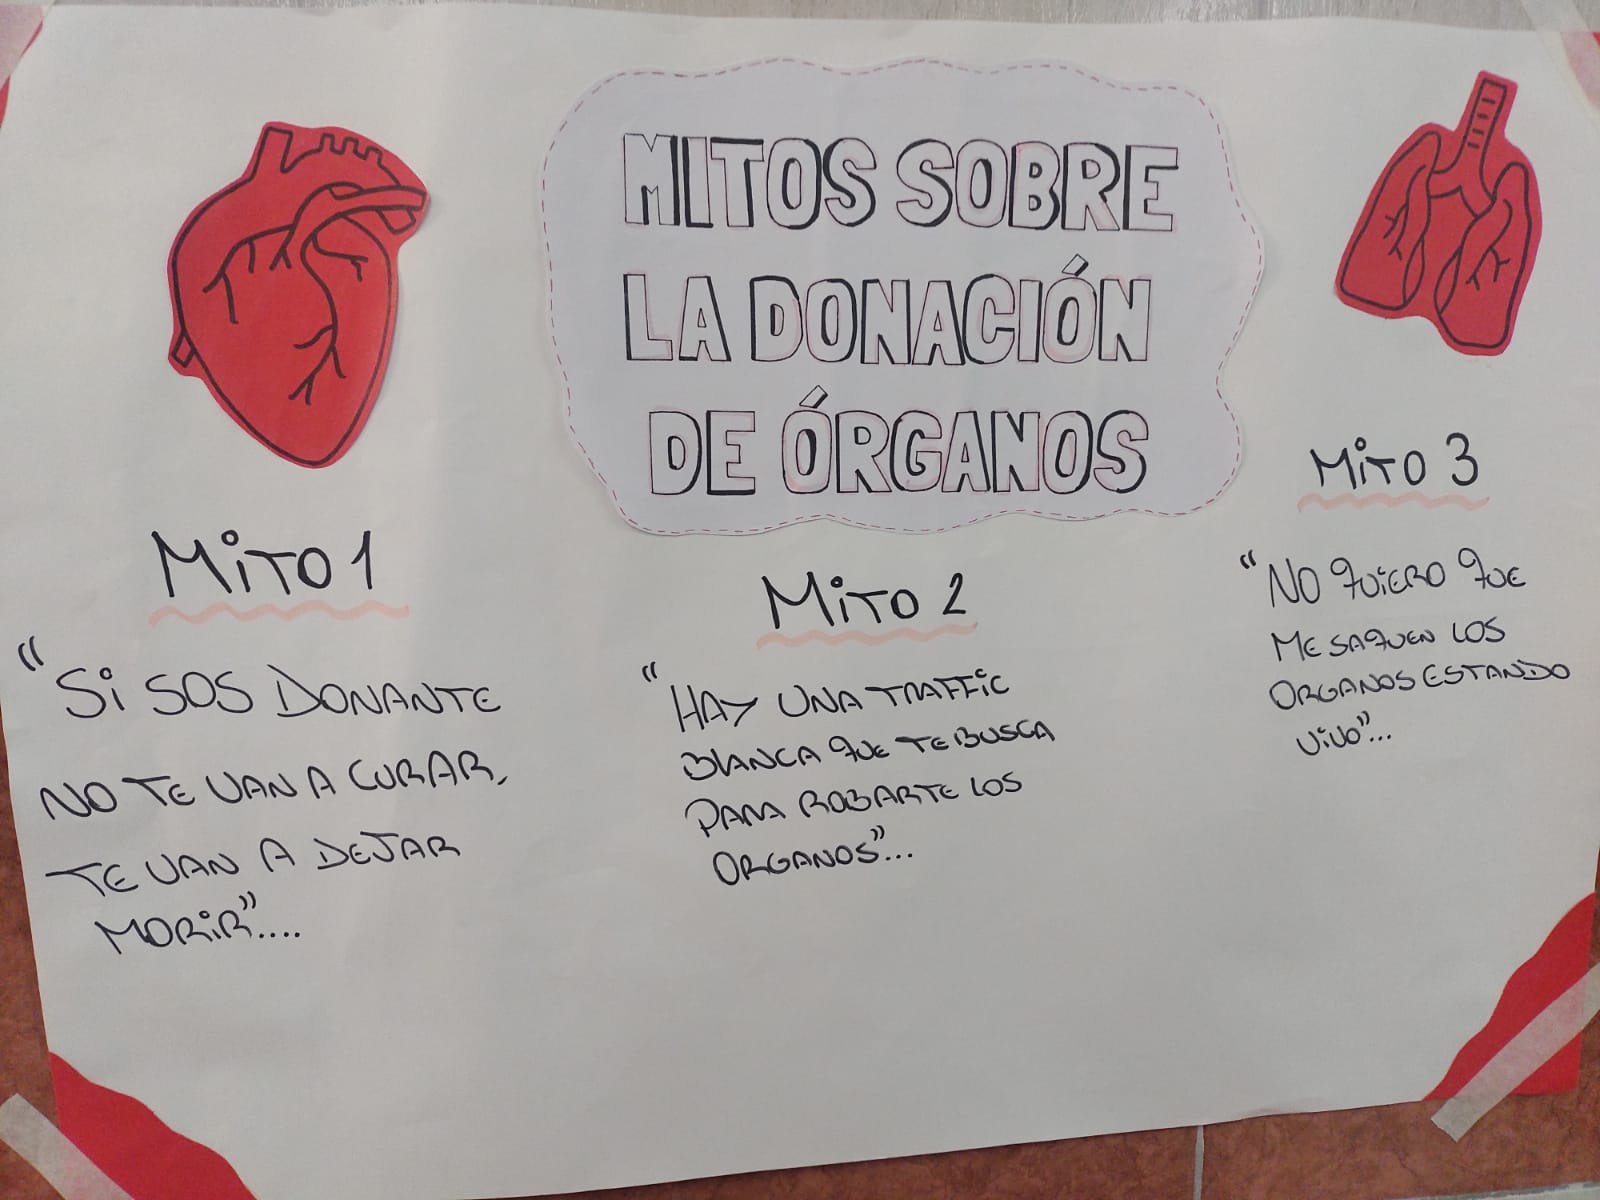 MITOS SOBRE
LA DONACIÓN
DE ÓRGANOS
MITO 1
"SI SOS DONANTE
NO TE VAN A CURAR,
TE VAN A DEJAR
MORIR"....
MITO 2
"HAY UNA TRAFFIC
BLANCA QUE TE BUSCA
PARA ROBARTE LOS
ORGANOS"...
MITO 3
"NO QUIERO QUE
ME SAQUEN LOS
ORGANOS ESTANDO
VIVO"...